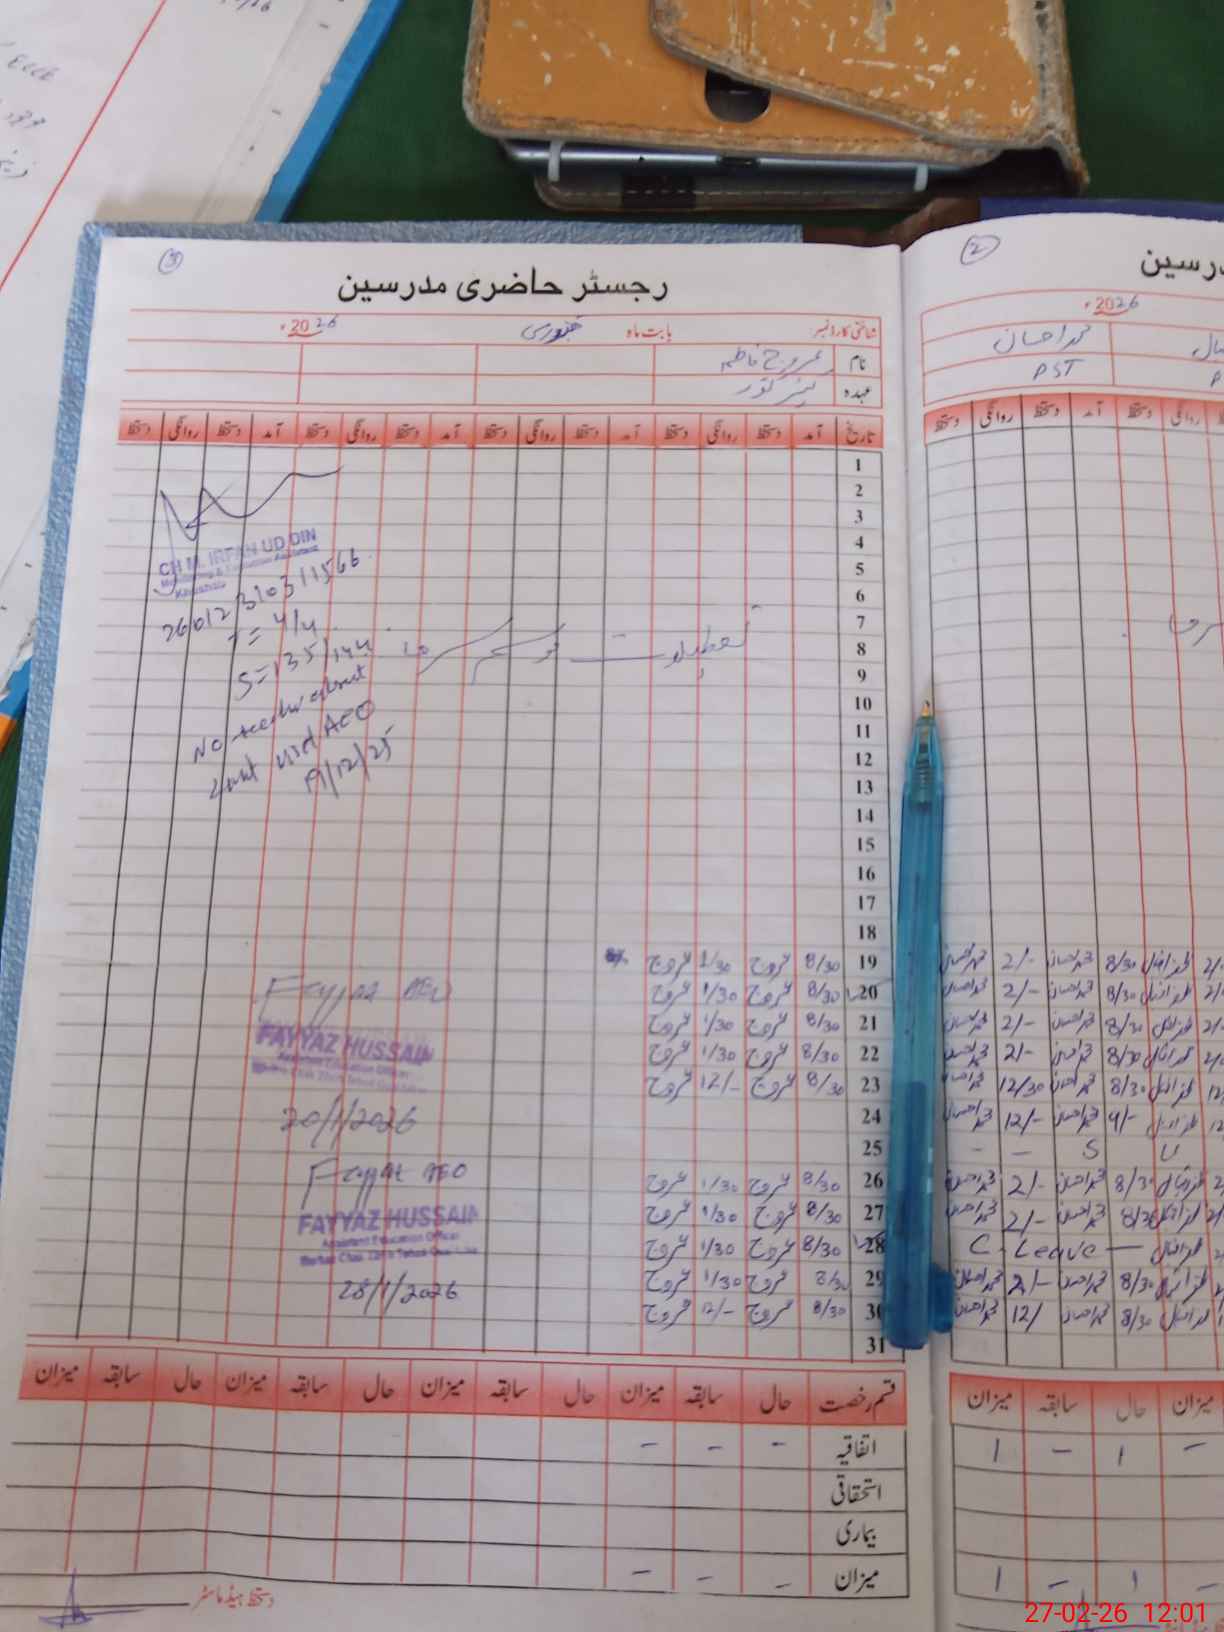 3
رجسٹر حاضری مدرسین
شناختی کارڈ نمبر: بابت ماہ جنوری 2026ء
نام عروج فاطمہ
عہدہ
تاریخ آمد دستخط روانگی دستخط آمد دستخط روانگی دستخط آمد دستخط روانگی دستخط آمد دستخط روانگی دستخط
1
2
3
4
CH M. IRFAN UD DIN
Monitoring & Evaluation Assistant
Khushab
5
6
7
T = 4/4
8
تعطیلات موسم سرما
S=135/144
9
10
No teacher absent
11
Last visit AEO
12
19/12/25
13
14
15
16
17
18
19 8/30 عروج 1/30 عروج
20 8/30 عروج 1/30 عروج
Fayyaz AEO
21 8/30 عروج 1/30 عروج
FAYYAZ HUSSAIN
Assistant Education Officer
22 8/30 عروج 1/30 عروج
23 8/30 عروج 12/- عروج
24
20/1/2026
25
26 8/30 عروج 1/30 عروج
Fayyaz AEO
27 8/30 عروج 1/30 عروج
FAYYAZ HUSSAIN
Assistant Education Officer
28 8/30 عروج 1/30 عروج
29 8/30 عروج 1/30 عروج
28/1/2026
30 8/30 عروج 12/- عروج
31
قسم رخصت حال سابقہ میزان حال سابقہ میزان حال سابقہ میزان حال سابقہ میزان
اتفاقیہ - - -
استحقاقی
بیماری
میزان - - -
دستخط ہیڈ ماسٹر
2
مدرسین
2026ء
محمد احسان
PST
روانگی دستخط آمد دستخط روانگی دستخط
8/30 محمد احسان 2/- محمد احسان
8/30 محمد احسان 2/- محمد احسان
8/30 محمد احسان 2/- محمد احسان
8/30 محمد احسان 2/- محمد احسان
8/30 محمد احسان 12/30 محمد احسان
9/- محمد احسان 12/- محمد احسان
U S - -
8/30 محمد احسان 2/- محمد احسان
8/30 محمد احسان 2/- محمد احسان
C - Leave -
8/30 محمد احسان 2/- محمد احسان
8/30 محمد احسان 12/ محمد احسان
میزان حال سابقہ میزان
- 1 - 1
- 1 - 1
27-02-26 12:01